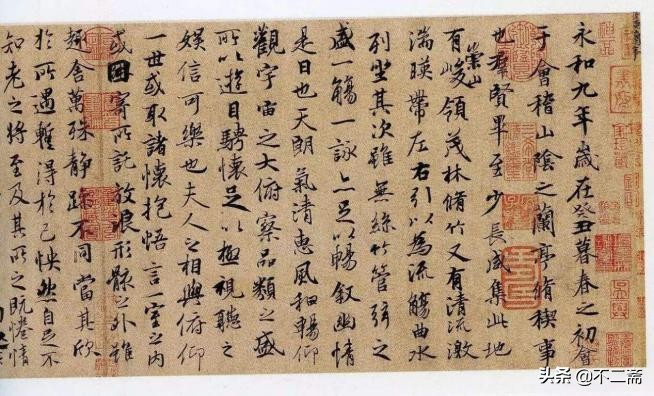 永和九年歲在癸丑暮春之初會
于會稽山陰之蘭亭脩稧事
也羣賢畢至少長咸集此地
有崇山峻領茂林脩竹又有清流激
湍暎帶左右引以為流觴曲水
列坐其次雖無絲竹管弦之
盛一觴一詠亦足以暢叙幽情
是日也天朗氣清惠風和暢仰
觀宇宙之大俯察品類之盛
所以遊目騁懷足以極視聽之
娛信可樂也夫人之相與俯仰
一世或取諸懷抱悟言一室之內
或因寄所託放浪形骸之外雖
趣舍萬殊靜躁不同當其欣
於所遇暫得於己怏然自足不
知老之將至及其所之既惓情
头条 @不二斋